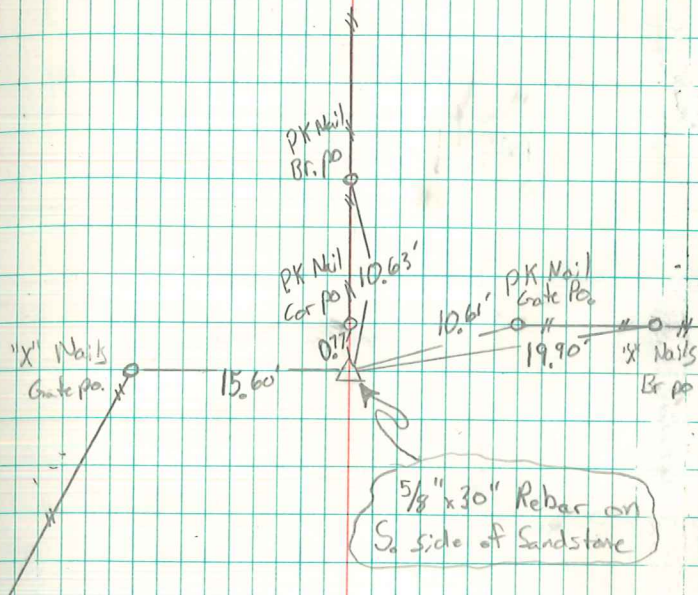 PK Nail
Br. po
10.63'
PK Nail
Cor po
0.77'
PK Nail
Gate Po.
10.61'
19.90'
"X" Nails
Br po
"X" Nails
Gate po.
15.60'
5/8" x 30" Rebar on
S. side of Sandstone